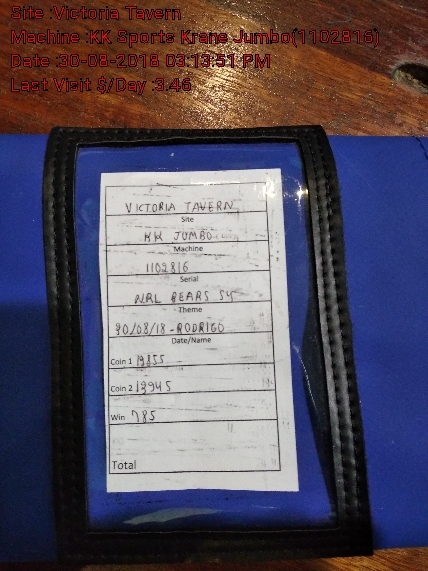 Site :Victoria Tavern
Machine :KK Sports Krane Jumbo(1102816)
Date :30-08-2018 03:13:51 PM
Last Visit $/Day :3.46
VICTORIA TAVERN
Site
KK JUMBO
Machine
1102816
Serial
NRL BEARS SY
Theme
30/08/18 - RODRIGO
Date/Name
Coin 1 13855
Coin 2 13945
Win 785
Total